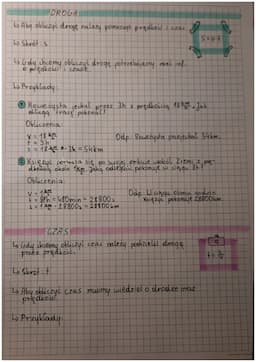 DROGA
↳ Aby obliczyć drogę należy pomnożyć prędkość i czas
S = v · t
↳ Skrót: s
↳ Gdy chcemy obliczyć drogę potrzebujemy mieć inf.
o prędkości i czasie.
↳ Przykłady:
Rowerzysta jechał przez 3h z prędkością 18 km/h. Jak
długą trasę pokonał?
Obliczenia:
v = 18 km/h
t = 3h
s = 18 km/h · 3h = 54km
Odp. Rowerzysta przejechał 54km.
Księżyc porusza się po swojej orbicie wokół Ziemi z prę-
dkością około 1km/s. Jaką odległość pokonuje w ciągu 8h?
Obliczenia:
v = 1 km/s
t = 8h = 480min = 28800s
s = 1 km/s · 28800s = 28800km
Odp. W ciągu ośmiu godzin
księżyc pokonuje 28800km.
CZAS
↳ Gdy chcemy obliczyć czas należy podzielić drogę
przez prędkość.
t = s/v
↳ Skrót: t
↳ Aby obliczyć czas musimy wiedzieć o drodze oraz
prędkości.
↳ Przykłady: